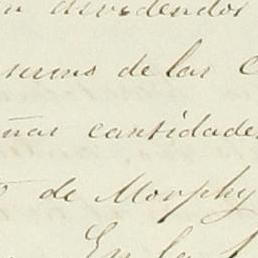 dividendos
de las
cantidades
de Morphy
En la